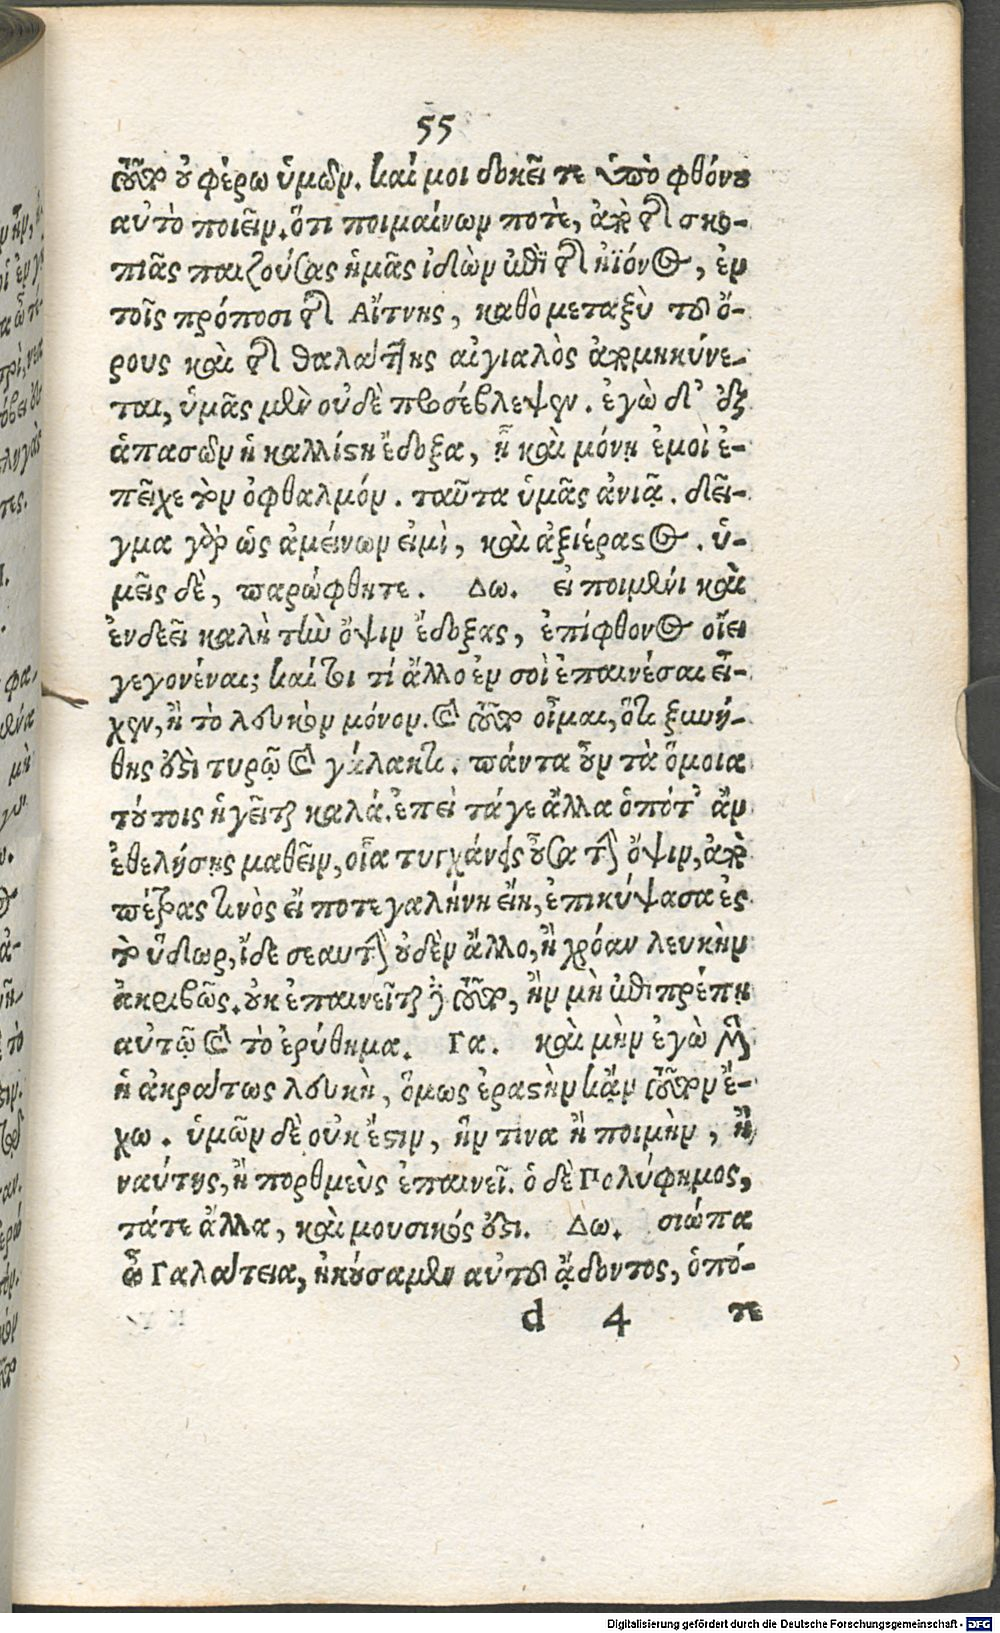 55
τοῦτον οὐ φέρω ὑμῶν. καί μοι δοκεῖτε ὑπὸ φθόνου
αὐτὸ ποιεῖν. ὅτι ποιμαίνων ποτὲ, ἀπὸ τῆς σκο-
πιᾶς παιζούσας ἡμᾶς ἰδὼν ἐπὶ τῆς ἠϊόνος, ἐν
τοῖς πρόποσι τῆς Αἴτνης, καθὸ μεταξὺ τοῦ ὄ-
ρους καὶ τῆς θαλάττης αἰγιαλὸς ἀπομηκύνε-
ται, ὑμᾶς μὲν οὐδὲ προσέβλεψεν. ἐγὼ δ' ἐξ
ἁπασῶν ἡ καλλίστη ἔδοξα, ᾗ καὶ μόνῃ ἐμοὶ ἐ-
πεῖχε τὸν ὀφθαλμόν. ταῦτα ὑμᾶς ἀνιᾷ. δεῖ-
γμα γὰρ ὡς ἀμείνων εἰμὶ, καὶ ἀξιέραστος. ὑ-
μεῖς δὲ, παρώφθητε. Δω. εἰ ποιμένι καὶ
ἐνδεεῖ καλὴ τὴν ὄψιν ἔδοξας, ἐπίφθονος οἴει
γεγονέναι; καίτοι τί ἄλλο ἐν σοὶ ἐπαινέσαι εἶ-
χεν, ἢ τὸ λευκὸν μόνον. καὶ τοῦτο οἶμαι, ὅτι ξυνή-
θης ἐστὶ τυρῷ καὶ γάλακτι. πάντα οὖν τὰ ὅμοια
τούτοις ἡγεῖται καλά. ἐπεὶ τάγε ἄλλα ὁπότ' ἂν
ἐθελήσῃς μαθεῖν, οἵα τυγχάνεις οὖσα τὴν ὄψιν, ἀπὸ
πέτρας τινὸς εἴ ποτε γαλήνη εἴη, ἐπικύψασα ἐς
τὸ ὕδωρ, ἴδε σεαυτὴν οὐδὲν ἄλλο, ἢ χρόαν λευκὴν
ἀκριβῶς. οὐκ ἐπαινεῖται δὲ τοῦτο, ἢν μὴ ἐπιπρέπῃ
αὐτῷ καὶ τὸ ἐρύθημα. Γα. καὶ μὴν ἐγὼ μὲν
ἡ ἀκράτως λευκὴ, ὅμως ἐραστὴν κἂν τοῦτον ἔ-
χω. ὑμῶν δὲ οὐκ ἔστιν, ἥν τινα ἢ ποιμὴν, ἢ
ναύτης, ἢ πορθμεὺς ἐπαινεῖ. ὁ δὲ Πολύφημος,
τάτε ἄλλα, καὶ μουσικός ἐστι. Δω. σιώπα
ὦ Γαλάτεια, ἠκούσαμεν αὐτοῦ ᾄδοντος, ὁπό-
d 4 τε
Digitalisierung gefördert durch die Deutsche Forschungsgemeinschaft - DFG